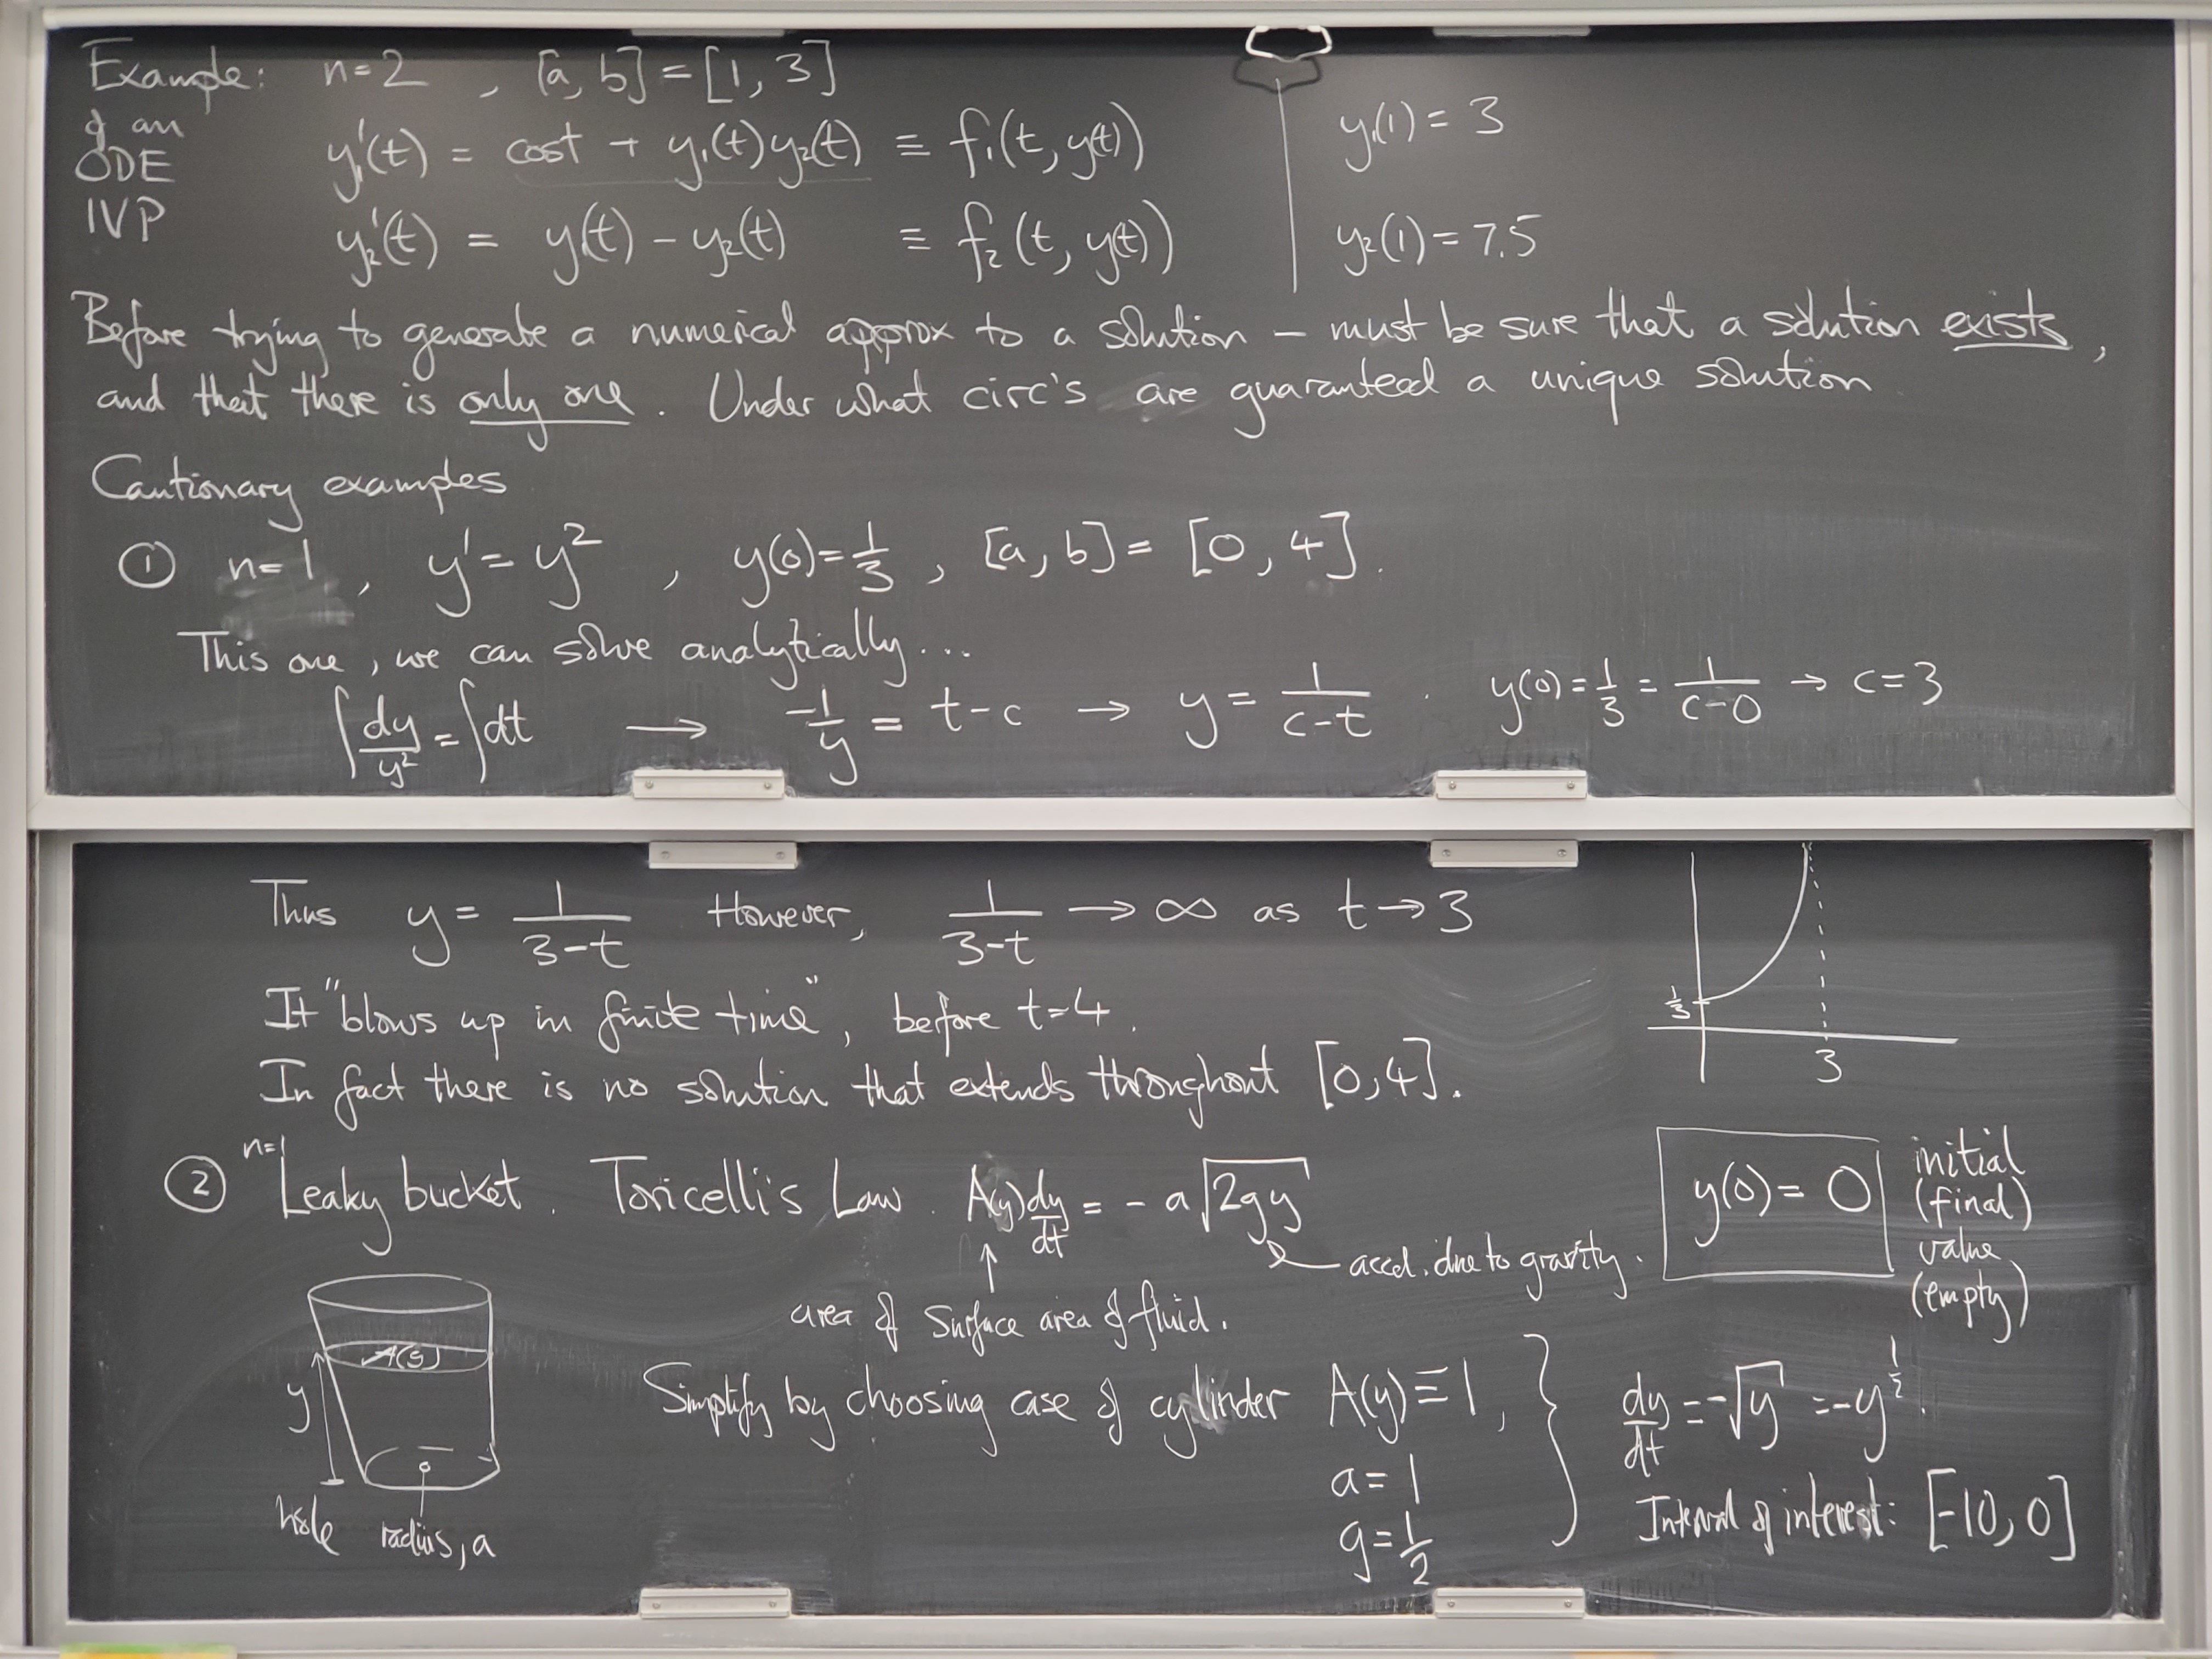 Example: n=2 , [a, b] = [1, 3]
of an
ODE
IVP
y₁'(t) = cos t + y₁(t) y₂(t) ≡ f₁(t, y(t))
y₂'(t) = y(t) - y₂(t) ≡ f₂(t, y(t))
y₁(1) = 3
y₂(1) = 7.5
Before trying to generate a numerical approx to a solution – must be sure that a solution exists,
and that there is only one. Under what circ's are guaranteed a unique solution
Cautionary examples
① n=1 , y' = y² , y(0)=1/3 , [a, b] = [0, 4].
This one, we can solve analytically...
∫ dy/y² = ∫dt → -1/y = t-c → y = 1/(c-t) . y(0) = 1/3 = 1/(c-0) → c=3
Thus y = 1/(3-t) However, 1/(3-t) → ∞ as t→3
It "blows up in finite time", before t=4.
In fact there is no solution that extends throughout [0,4].
1/3
3
n=1
② Leaky bucket. Toricelli's Law. A(y) dy/dt = - a √(2gy)
accel. due to gravity.
area of surface area of fluid.
y(0) = 0
initial
(final)
value
(empty)
A(y)
y
hole radius, a
Simplify by choosing case of cylinder A(y) ≡ 1,
a = 1
g = 1/2
dy/dt = -√y = -y^(1/2).
Interval of interest: [-10, 0]